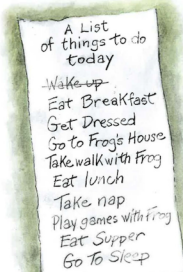 A List
of things to do
today
Wake up
Eat Breakfast
Get Dressed
Go to Frog's House
Take walk with Frog
Eat lunch
Take nap
Play games with Frog
Eat Supper
Go To Sleep